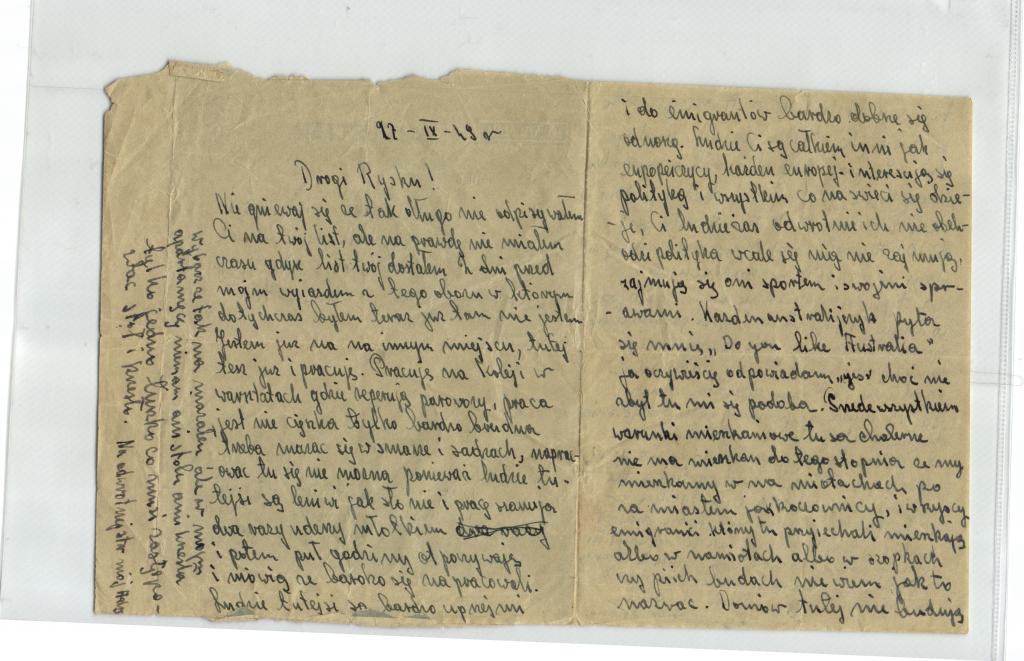 27 - IV - 49 r
Drogi Rysku!
Nie gniewaj się ze tak długo nie odpisywałem
Ci na twój list, ale na prawdę nie miałem
czasu gdyz list twój dostałem 2 dni przed
mojm wyjazdem z tego obozu w którym
dotychczas byłem teraz juz tam nie jestem
Jestem juz na na innym miejscu, tutej
tez juz i pracuję. Pracuję na Koleji w
warsztatach gdzie reperują parowozy, praca
jest nie cięzka tylko bardzo brudna
trzeba mazac się w smaze i sadzach, naprac-
owac tu się nie mozną poniewaź ludzie tu-
tejsi są leniw jak sto nie i pracę szanują
dwa razy udezy młotkiem dwa razy
i potem puł godziny otpoczywają
i mówią ze bardzo się napracowali.
Ludzie tutejsi są bardzo uprzejmi
i do emigrantów bardzo dobrze się
odnoszą. Ludzie Ci są całkiem inni jak
europejczycy, kazden europej- interesują się
polityką i wszystkim co na swieci się dzie-
-je, Ci ludzie zas odwrotnie ich nie obch-
odzi polityka wcale się nią nie zajmują,
zajmują się oni sportem i swojmi spr-
-awami. Kazden australijczyk pyta
się mnie „Do you like Australia"
ja oczywiścię odpowiadam „yes" choć nie
zbyt tu mi się podoba. Przedewszystkiem
warunki mieszkaniowe tu są cholerne
nie ma mieszkan do tego stopnia ze my
mieszkamy w na miotachach po
za miastem jak kocownicy, i wszyscy
emigranci którzy tu przyjechali mieszkają
albo w namiotach albo w szopkach
czy psich budach nie wiem jak to
nazwac. Domów tutej nie budują
wybacz ze tak na mazałem ale w mojm
apartamęcę niemam ani stołu ani krzesła
tylko jedno łuzko co musi zastępo-
wac stół i krzesło. Na odwrotnej str mój